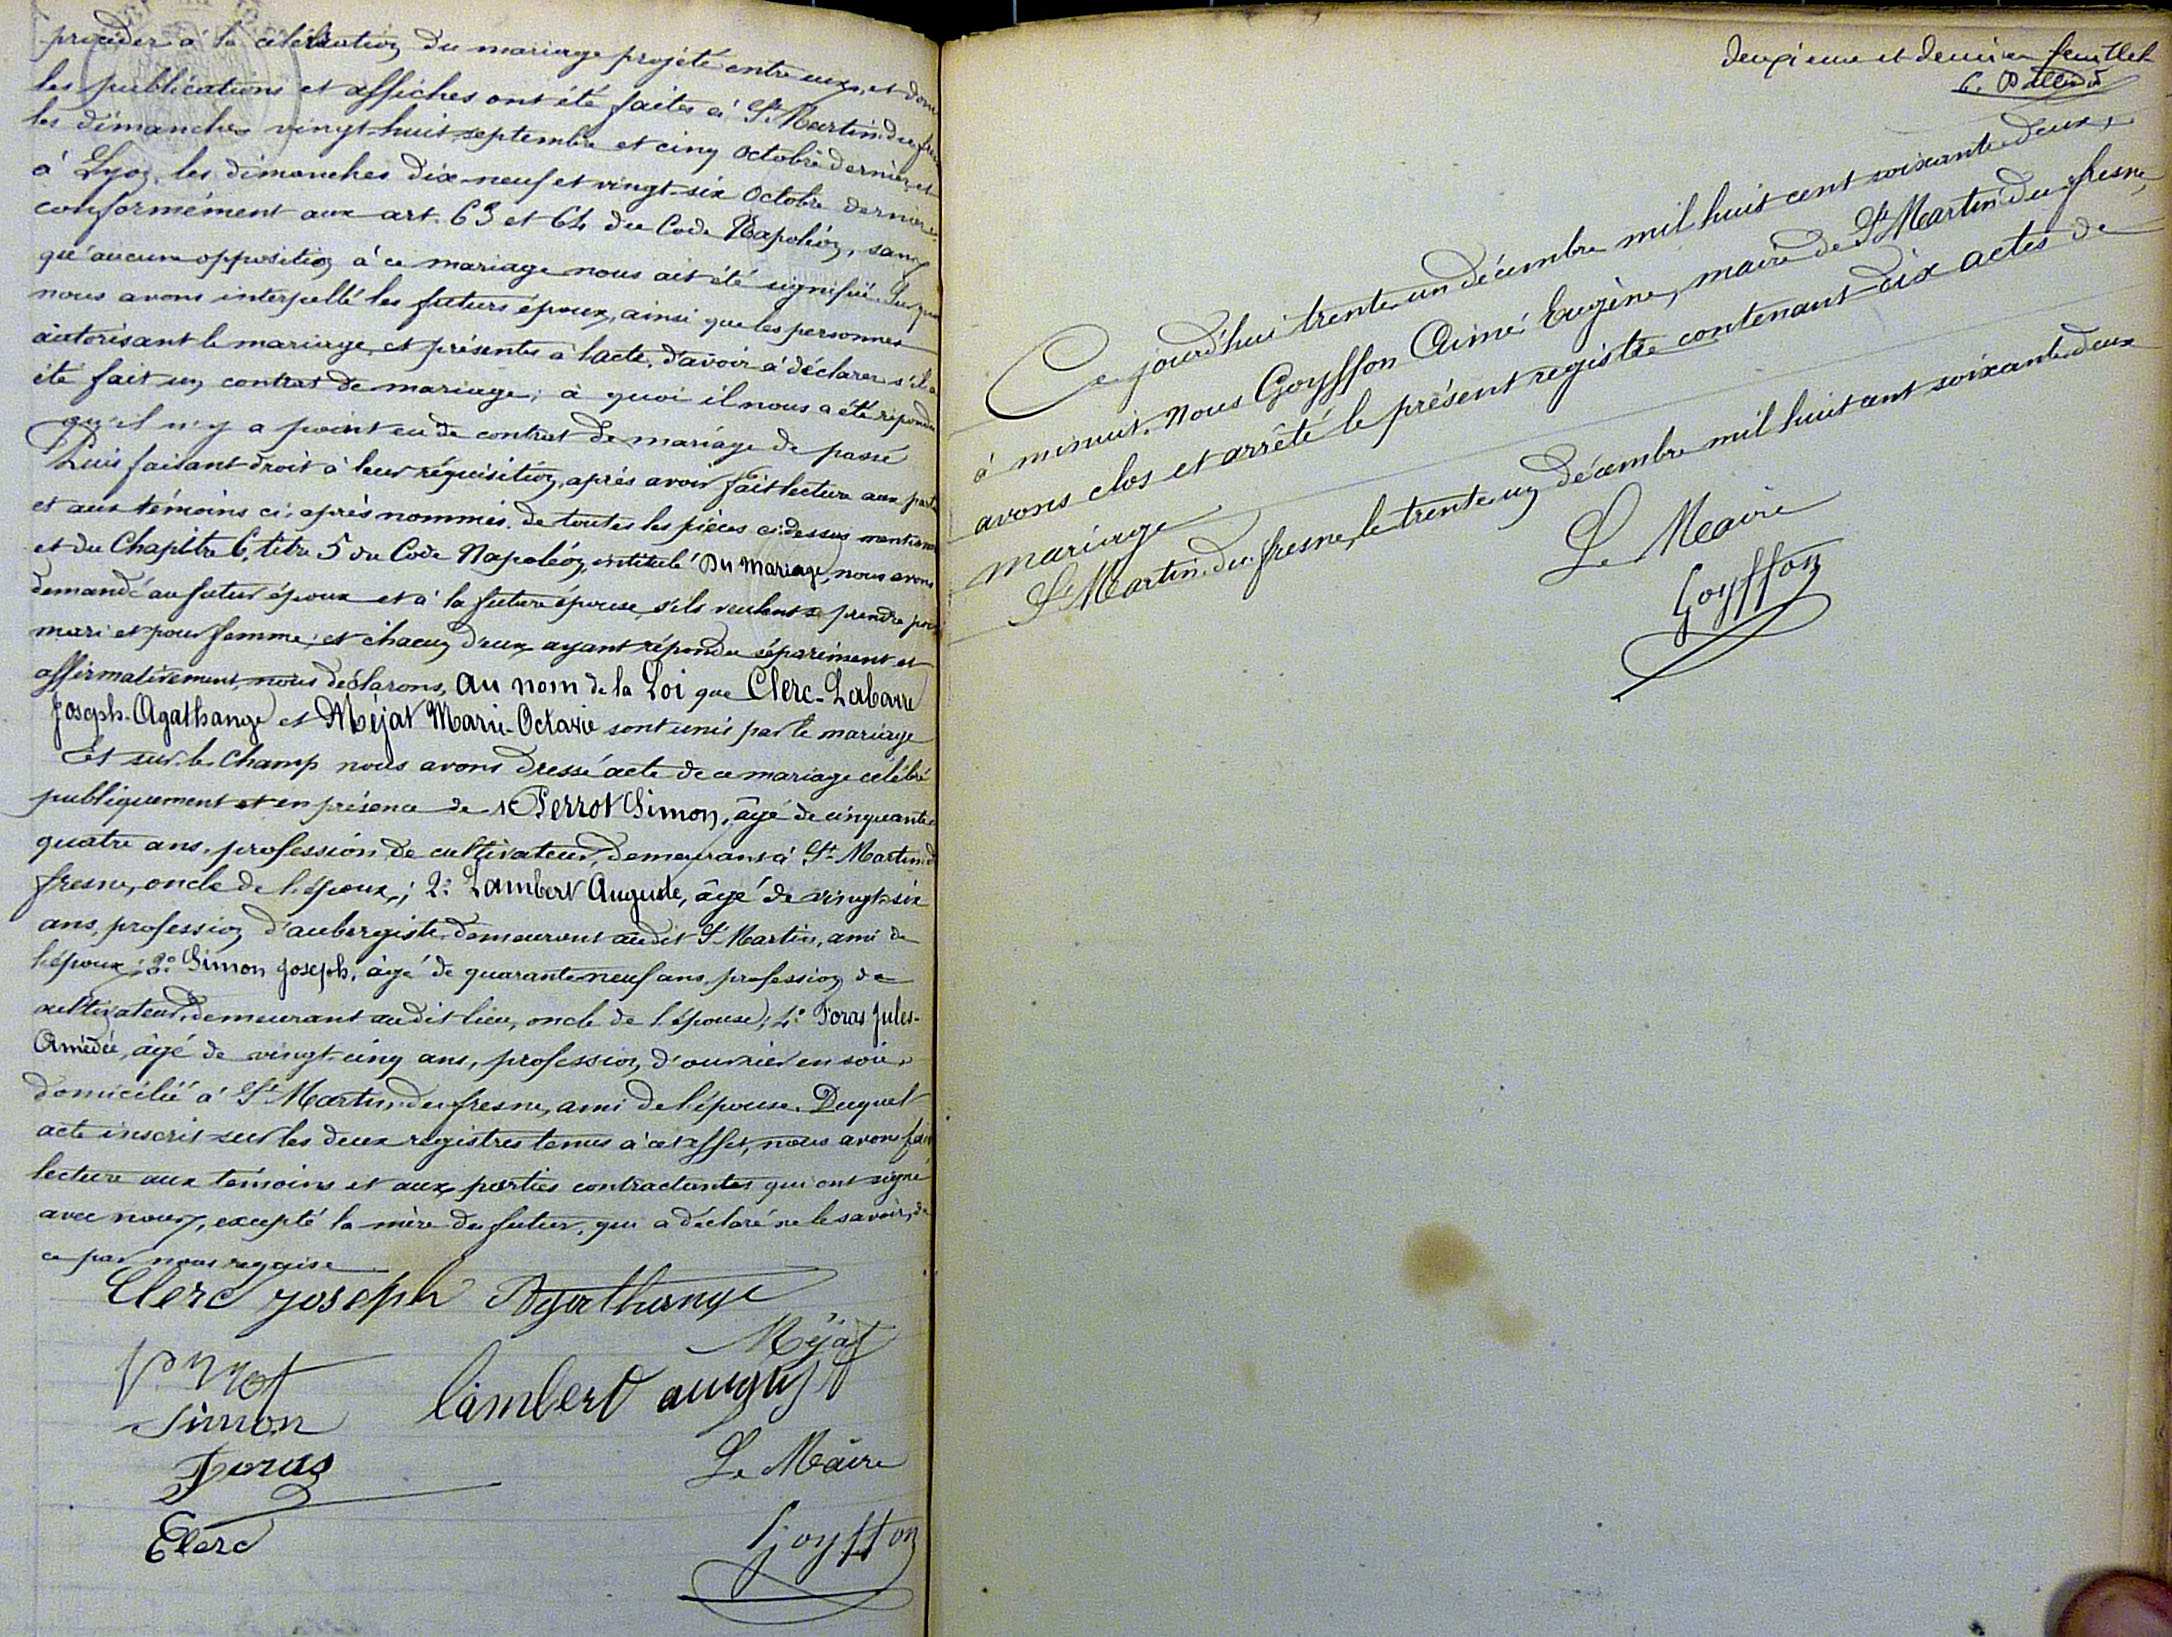 procéder à la célébration du mariage projeté entre eux, et dont
les publications et affiches ont été faites à St Martin-du-fresne
les dimanches vingt-huit septembre et cinq octobre dernier, et
à Lyon, les dimanches dix-neuf et vingt-six octobre dernier
conformément aux art. 63 et 64 du Code Napoléon, sans
qu'aucune opposition à ce mariage nous ait été signifiée. Lesquels
nous avons interpellé les futurs époux, ainsi que les personnes
autorisant le mariage, et présentes à l'acte, d'avoir à déclarer s'il a
été fait un contrat de mariage; à quoi il nous a été répondu
qu'il n'y a point eu de contrat de mariage de passé
Puis faisant droit à leur réquisition, après avoir fait lecture aux parties
et aux témoins ci-après nommés, de toutes les pièces ci-dessus mentionnées
et du Chapitre 6, titre 5 du Code Napoléon, intitulé Du Mariage, nous avons
demandé au futur époux et à la future épouse, s'ils veulent se prendre pour
mari et pour femme; et chacun d'eux ayant répondu séparément et
affirmativement, nous déclarons, au nom de la Loi que Clerc-Labarre
Joseph-Agathange et Méjat Marie-Octavie sont unis par le mariage
Et sur-le-champ nous avons dressé acte de ce mariage célébré
publiquement et en présence de 1° Perrot Simon, âgé de cinquante
quatre ans, profession de cultivateur, demeurant à St Martin-du
fresne, oncle de l'époux; 2° Lambert Auguste, âgé de vingt-six
ans, profession d'aubergiste demeurant audit St Martin, ami de
l'époux; 3° Simon Joseph, âgé de quarante-neuf ans, profession de
cultivateur, demeurant audit lieu, oncle de l'épouse; 4° Foras Jules-
Amédée, âgé de vingt-cinq ans, profession d'ouvrier en soie,
domicilié à St Martin-du-fresne, ami de l'épouse. Duquel
acte inscrit sur les deux registres tenus à cet effet, nous avons fait
lecture aux témoins et aux parties contractantes qui ont signé
avec nous, excepté la mère du futur, qui a déclaré ne le savoir, de
ce par nous requise
Clerc joseph Agathange
Méjat
Perrot
lambert august
Simon
Foras
Le Maire
Clerc
Goyffon
deuxième et dernier feuillet
Ce jourd'hui trente-un décembre mil huit cent soixante-deux,
à minuit. Nous Goyffon Aimé Eugène, maire de St Martin-du-fresne,
avons clos et arrêté le présent registre contenant dix actes de
mariage
St Martin-du-fresne, le trente-un décembre mil huit cent soixante-deux
Le Maire
Goyffon